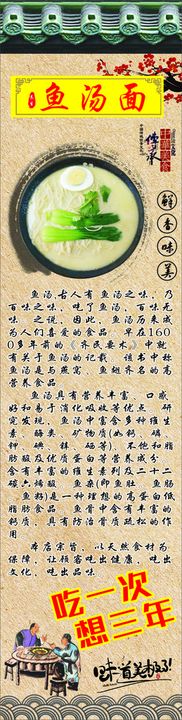 鱼汤面
中华美食
传承
鲜香味美
鱼汤,古人有鱼汤之味,乃
百味之味,吃了鱼汤,百味无
味之说,因此,鱼汤历来成
为人们喜爱的食品,早在160
0多年前的《齐民要术》中就
有关于鱼汤的记载,该书中称
鱼汤是与燕窝、鱼翅齐名的高
营养食品
鱼汤具有营养丰富,口感
好和易于消化吸收等优点,研
究发现,鱼汤中富含多种维生
素、酶类、矿物质(如钙、磷、
钾、钠、锌、硒等)、不饱和脂
肪酸及优质蛋白等营养成分,
含有丰富的维生素列及二十二
碳六烯酸、鱼染(即鱼肚、鱼肠
、鱼籽)是一种理想的高蛋白低
脂肪食品,鱼骨中含有丰富的
钙质,具有防治骨质疏松的作
用
本店宗旨,以天然食材为
保障,让顾客吃出健康,吃出
文化,吃出品味
吃一次
想三年
味道美极了!